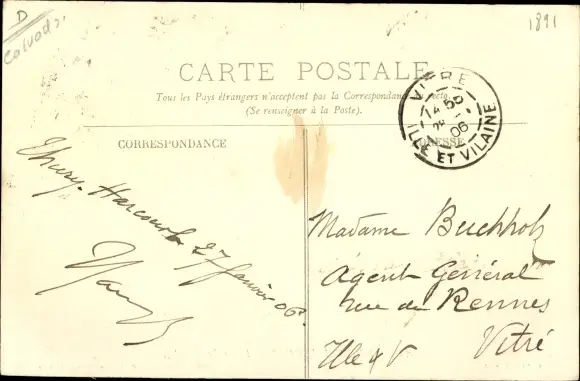 D
Calvados
1891
CARTE POSTALE
Tous les Pays étrangers n'acceptent pas la Correspondance au recto
(Se renseigner à la Poste).
CORRESPONDANCE
ADRESSE
VITRE
14 50
06
ILLE ET VILAINE
Thury-Harcourt 27 Janvier 06.
Madame Buchholz
Agent Général
rue de Rennes
Vitré
Ille & V